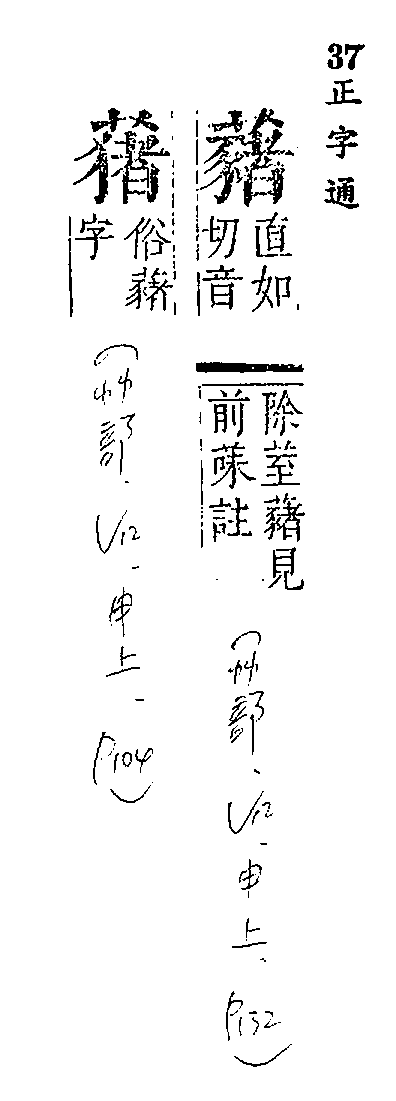 37正字通
藸
直如
切音
除荎藸見
前菋註
(艸部、V12、申上、P132)
蕏
俗藸
字
(艸部、V12、申上、P104)